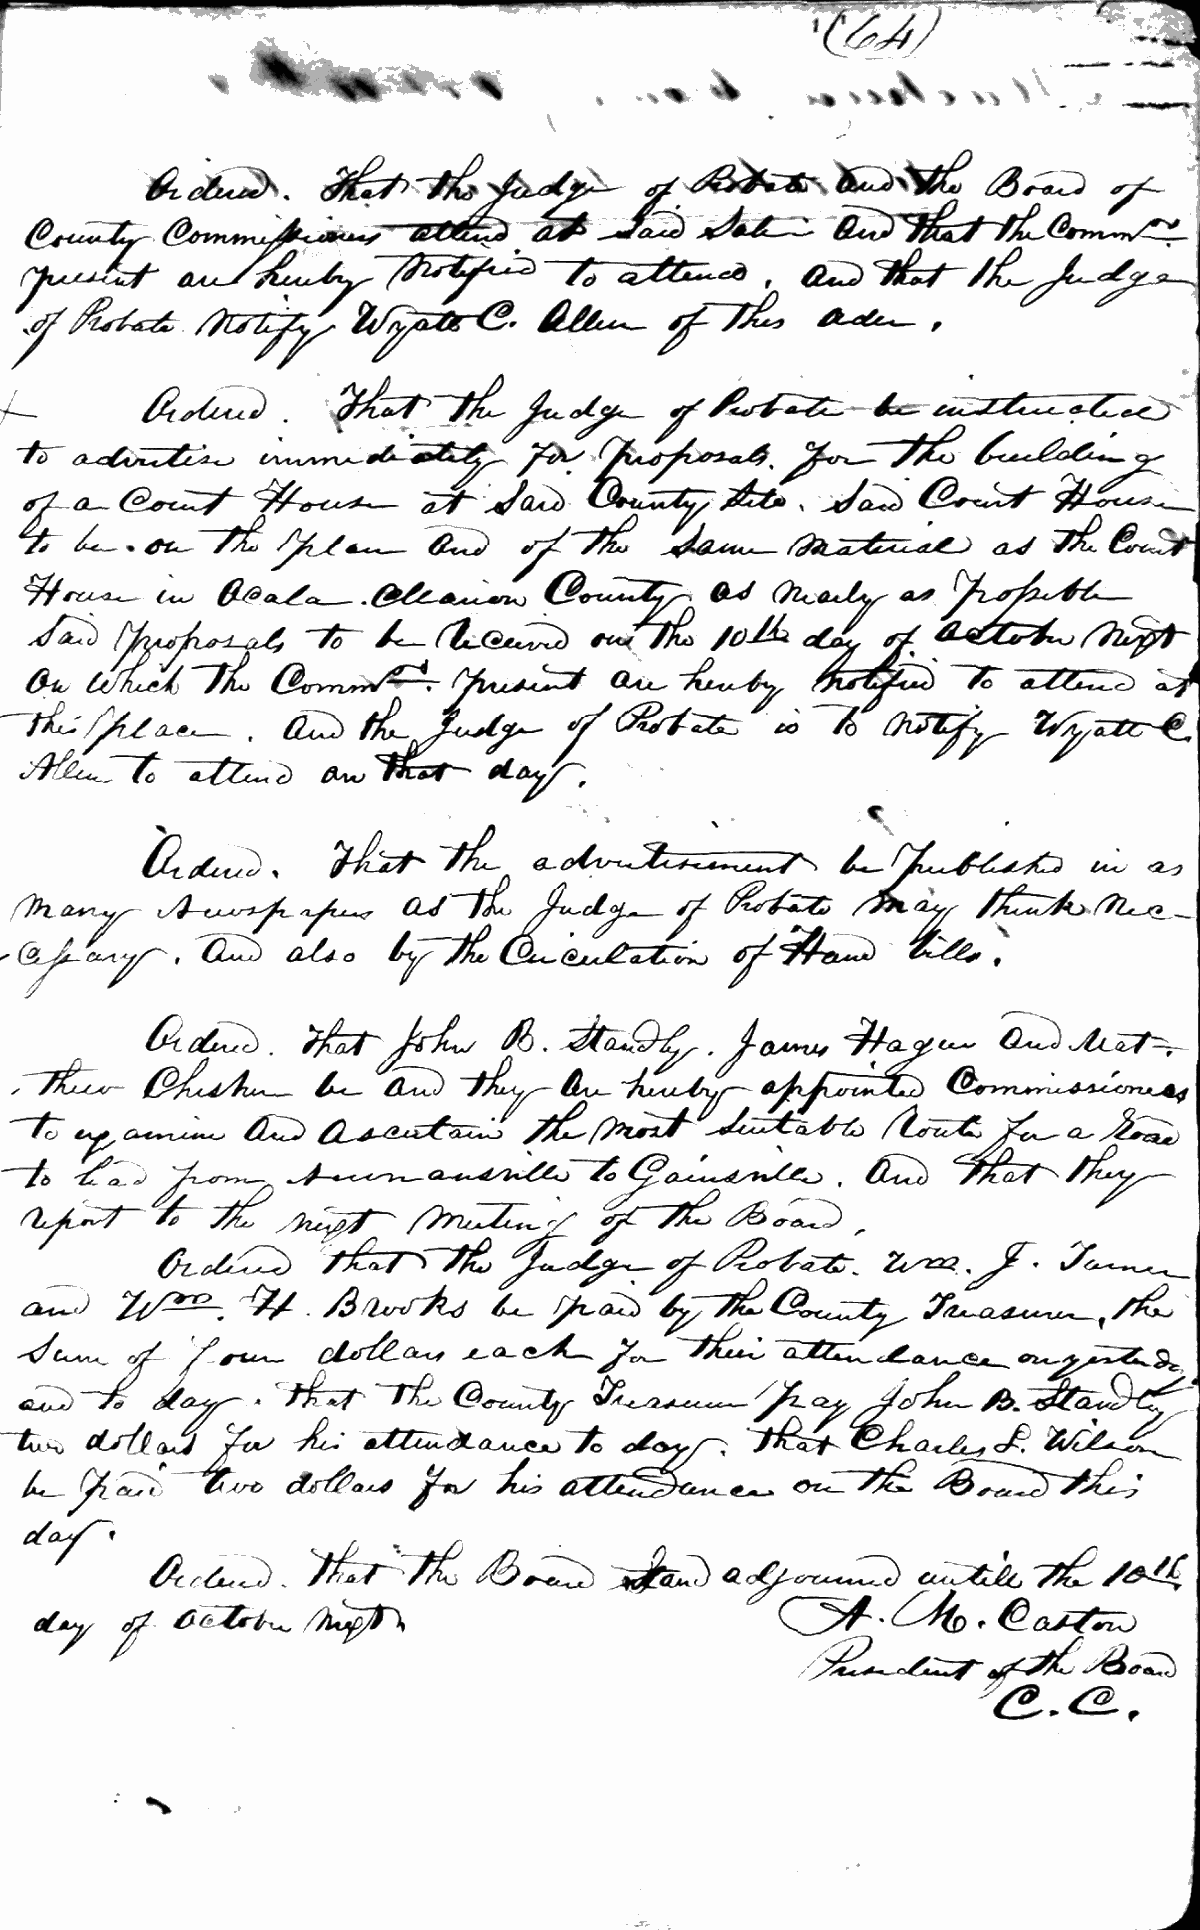 (64)
Ordered. That the Judge of Probate and the Board of
County Commissioners attend at said Sale and that the Commrs.
present are hereby Notified to attend, and that the Judge
of Probate Notify Wyatt C. Allen of this order.
Ordered. That the Judge of Probate be instructed
to advertise immediately for proposals. for the building
of a Court House at Said County Site. Said Court House
to be on the plan and of the Same Material as the Court
House in Ocala. Marion County as nearly as possible
Said proposals to be Received on the 10th day of October Next
on which the Commrs. present are hereby notified to attend at
this place. And the Judge of Probate is to notify Wyatt C.
Allen to attend on that day.
Ordered. That the advertisement be published in as
many Newspapers as the Judge of Probate may think Nec-
-essary. And also by the Circulation of Hand bills.
Ordered. That John B. Standly. James Hague and Mat-
thew Chisher be and they are hereby appointed Commissioners
to examine and ascertain the most suitable Route for a Road
to lead from Newnansville to Gainsville. And that they
report to the next Meeting of the Board.
Ordered that the Judge of Probate. Wm. J. Turner
and Wm. H. Brooks be paid by the County Treasurer, the
Sum of four dollars each for their attendance on yesterday
and to day. that the County Treasurer pay John B. Standly
two dollars for his attendance to day. that Charles L. Wilson
be paid two dollars for his attendance on the Board this
day.
Ordered. that the Board Stand adjourned untill the 10th
day of October next
A. M. Caston
President of the Board
C. C.